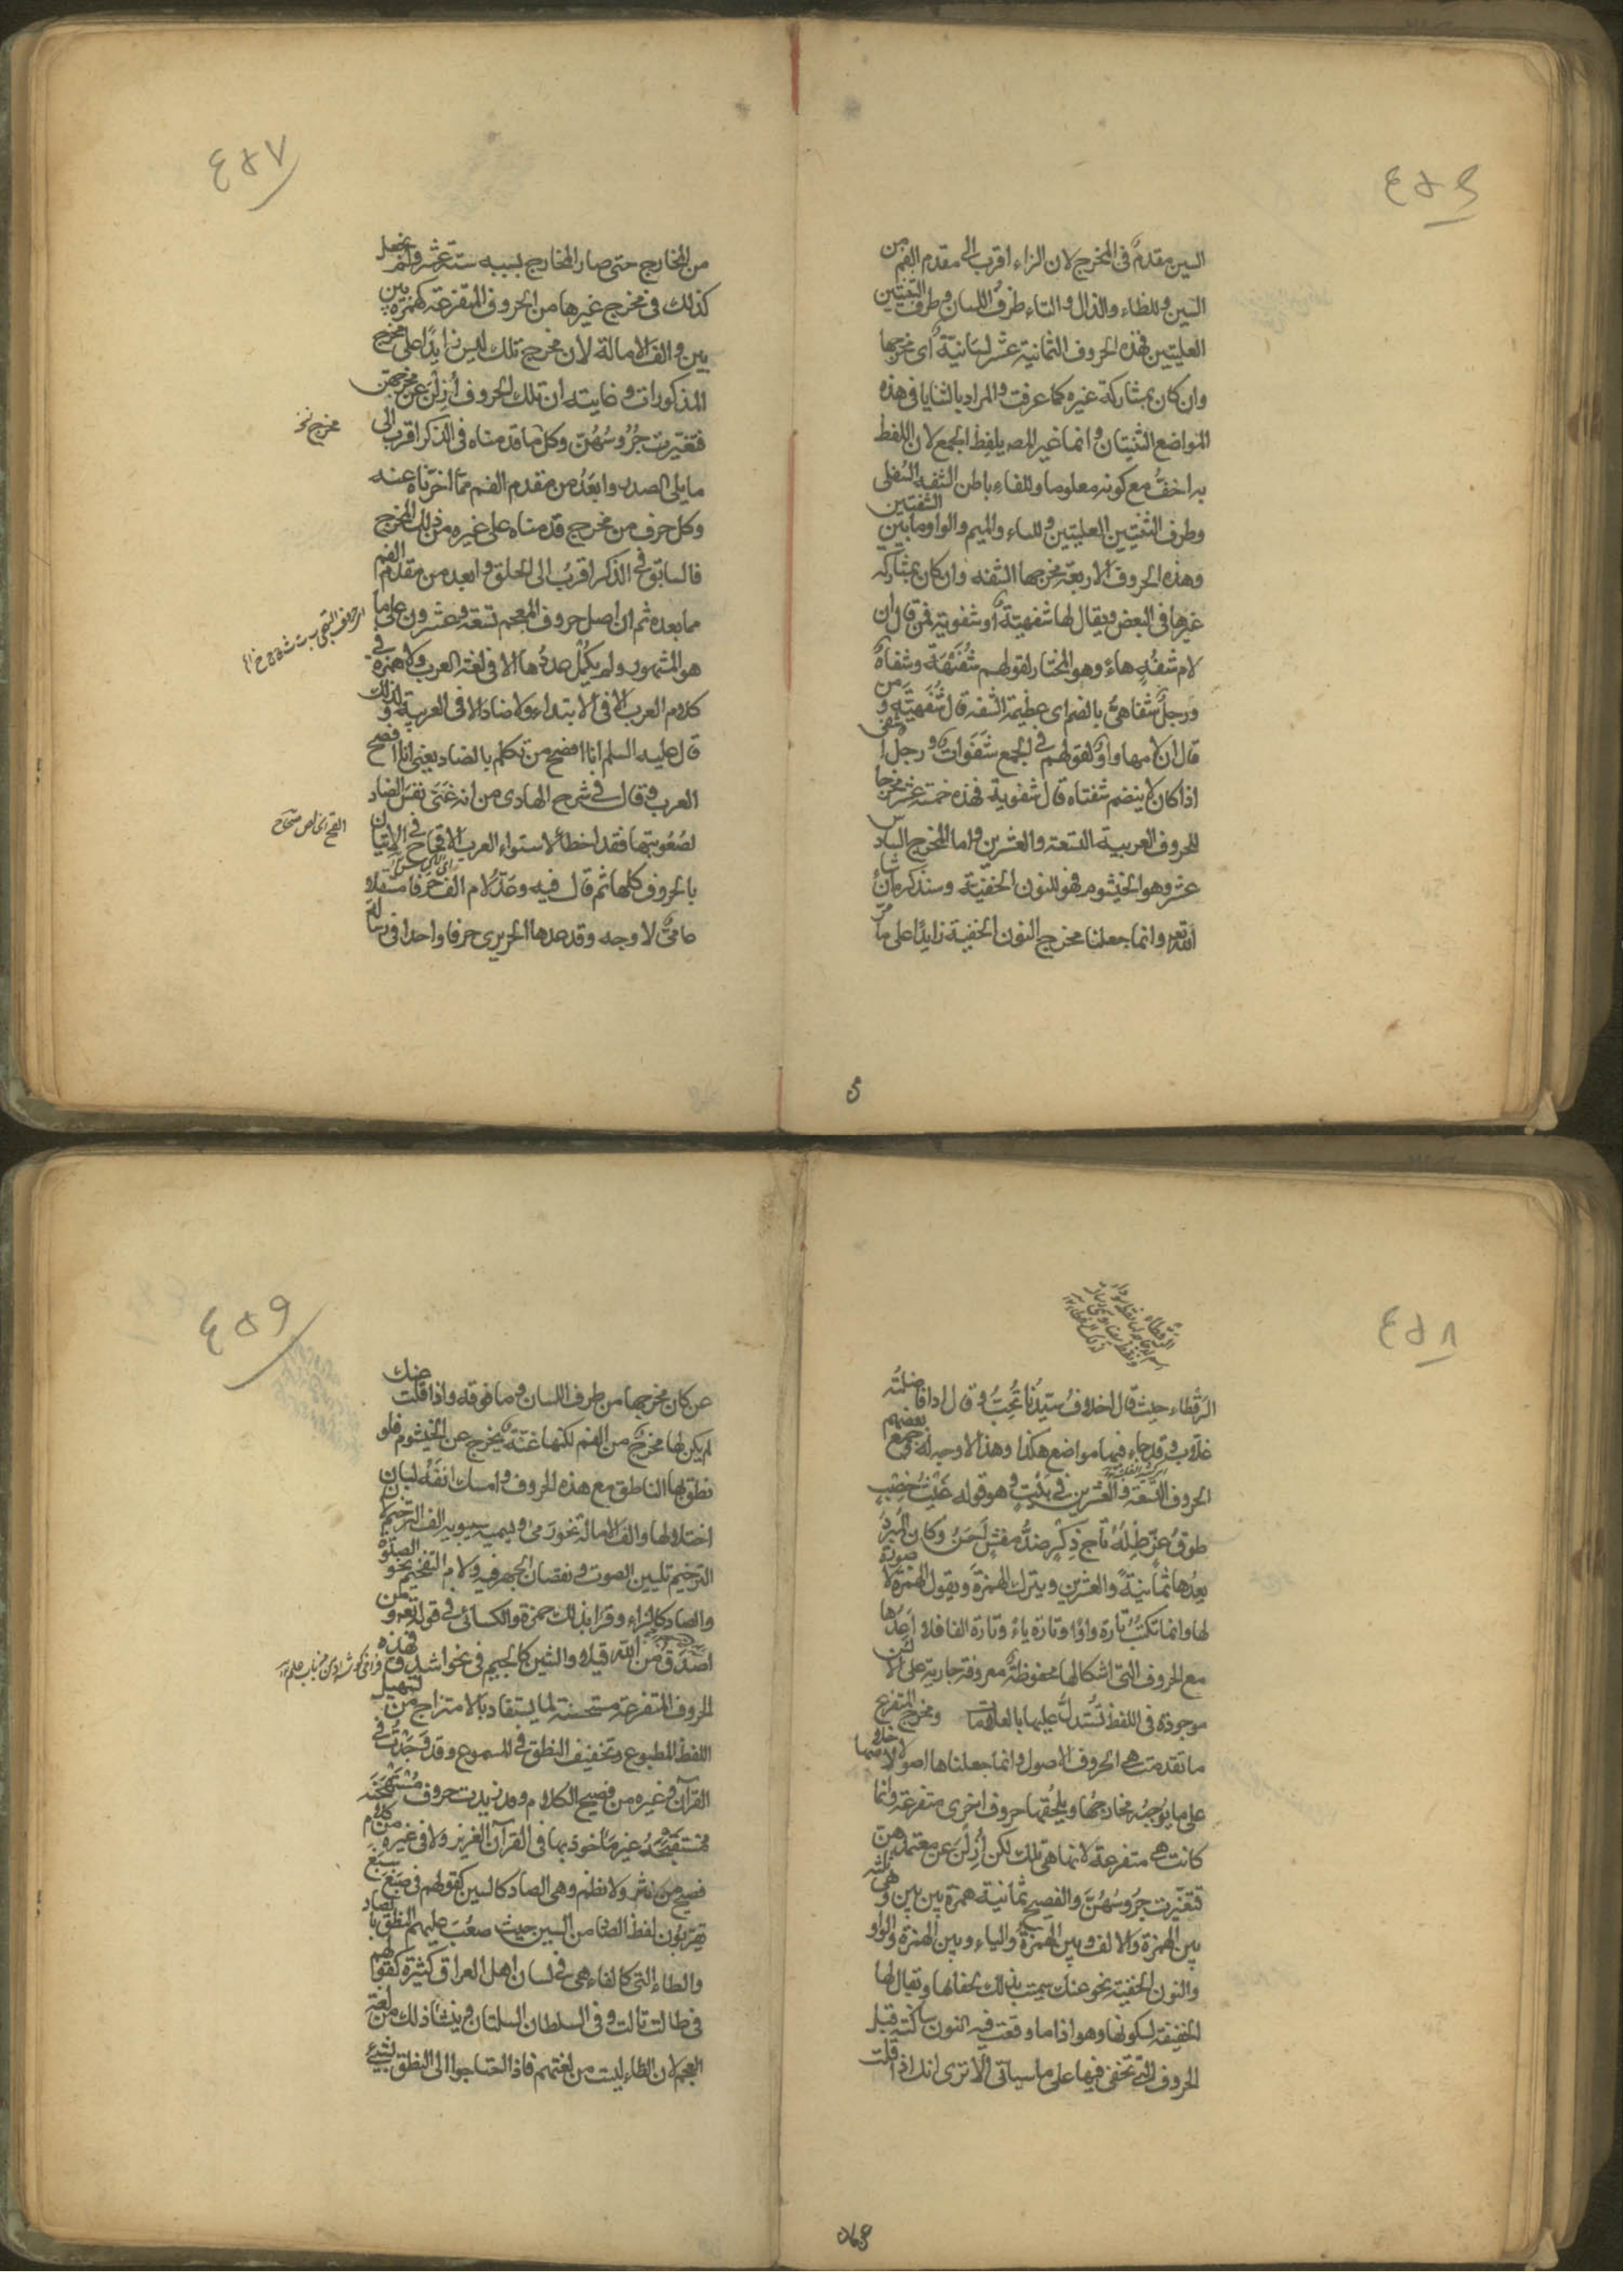 ٤٥٦
السين مقدم فى المخرج لان الزاء اقرب الى مقدم الفم من
السين وللظاء والذال والثاء طرف اللسان وطرف الثنيتين
العليتين فهذه الحروف الثمانية عشر لسانية اى مخرجها
وان كان بمشاركة غيره كما عرفت والمراد بالثنايا فى هذه
المواضع الثنيتان وانما غير المصـ بلفظ الجمع لان اللفظ
به اخف مع كونه معلوما وللفاء باطن الشفه السفلى
وطرف الثنيتين العليتين وللباء والميم والواو ما بين الشفتين
وهذه الحروف الاربعة مخرجها الشفه وان كان بمشاركه
غيرها فى البعض ويقال لها شفهية او شفوية فمن قال ان
لام شفه هاء وهو المختار لقولهم شفيهة وشفاه
ورجل شفاهى بالضم اى عظيمة الشفه قال شفهية ومن
قال ان لامها واو لقولهم فى الجمع شفوات ورجل اشفى
اذا كان لا ينضم شفتاه قال شفوية فهذه خمسة عشر مخرجا
للحروف العربية التسعة والعشرين واما المخرج السادس
عشر وهو الخيشوم فهو للنون الخفيّة وسنذكره ان شاء
الله تعـ وانما جعلنا مخرج النون الخفية زايدا على ما مر
٤٥٧
من المخارج حتى صار المخارج بسببه ستة عشر ولم نجعل
كذلك فى مخرج غيرها من الحروف المتفرعة كهمزة بين
بين والف الامالة لان مخرج تلك ليس زايدا على مخرج
المذكورات وغايته ان تلك الحروف ازلن عن مخرجهن
مخرج نخ
فتغيرت جروسهن وكل ما قدمناه فى الذكر اقرب الى
ما يلى الصدر وابعد من مقدم الفم مما اخرناه عنه
وكل حرف من مخرج قدمناه على غيره من ذلك المخرج
فالسابق فى الذكر اقرب الى الحلق وابعد من مقدم الفم
مما بعده ثم ان اصل حروف المعجم تسعة وعشرون على ما
هو المشهور ولم يكمل عددها الا فى لغة العرب ولا همزة فى
كلام العرب الا فى الابتداء ولا ضاد الا فى العربية ولذلك
قال عليه السلم انا افصح من تكلم بالضاد يعنى انا افصح
العرب وقال فى شرح الهادى من انه عنى نفس الضاد
لصعوبتها فقد اخطأ لاستواء العرب الاقحاح فى الاتيان
بالحروف كلها ثم قال فيه وعدّ لام الف حرفا مستقلا
عامىّ لا وجه وقد عدها الحريرى حرفا واحدا فى رسالته
٤٥٨
الرقطاء حيث قال اخلاف سيدنا تحب وقال اذا فاضلته
غلاب وقد جاء فيها مواضع هكذا وهذا لا وجه له وجمع بعضهم
الحروف التسعة والعشرين فى بيت وهو قوله غيث خصب
طوق عز ظله تاج ذكر ضد مفش لحن وكان المبرد
يعدها ثمانية والعشرين ويترك الهمزة ويقول الهمزة لا صورة
لها وانما تكتب تارة واوا وتارة ياء وتارة الفا فلا اعدها
مع الحروف التى اشكالها محفوظة معروفة جارية على الالسن
موجودة فى اللفظ تستدل عليها بالعلامات ومخرج المتفرع
ما تقدمت هى الحروف الاصول وانما جعلناها اصولا لاخلاصها
على ما يوجبه مخارجها ويلحقها حروف اخرى متفرعة وانما
كانت هى متفرعة لانها هى تلك لكن ازلن عن معتمدهن
فتغيرت جروسهن والفصيح ثمانية همزة بين بين وهى ثلثة
بين الهمزة والالف وبين الهمزة والياء وبين الهمزة والواو
والنون الخفية نحو عنك سميت بذلك لخفائها ويقال لها
الخفيفة لسكونها وهو اذا ما وقعت فيه النون ساكنة قبل
الحروف التى تخفى فيها على ما سياتى الا ترى انك اذا قلت
٤٥٩
عن كان مخرجها من طرف اللسان وما فوقه واذا قلت عنك
لم يكن لها مخرج من الفم لكنها غنة يخرج عن الخيشوم فلو
نطق بها الناطق مع هذه الحروف وامسك انفه لبان
اختلالها والف الامالة نحو رمى ويسميه سيبويه الف الترخيم لان
الترخيم تليين الصوت ونقصان الجهر فيه ولام التفخيم نحو الصلوة
والصاد كالزاء وقرأ بذلك حمزة والكسائى فى قوله تعـ ومن
اصدق من الله قيلا والشين كالجيم فى نحو اشدق فهذه
الحروف المتفرعة مستحسنة لما يستفاد بالامتزاج من تسهيل
اللفظ المطبوع وتخفيف النطق فى المسموع وقد وجدت فى
القرآن وغيره من فصيح الكلام وقد زيدت حروف مستهجنه
مستقبحة غير ماخوذ بها فى القرآن العزيز ولا فى غيره من كلام
فصيح من نثر ولا نظم وهى الصاد كالسين كقولهم فى صبغ سبغ
يقربون لفظ الصاد من السين حيث صعب عليهم النطق بالصاد
والطاء التى كالتاء هى فى لسان اهل العراق كثيرة كقولهم
فى طالت تالت وفى السلطان السلتان وينشأ ذلك من لغة
العجم لان الطاء ليست من لغتهم فاذا احتاجوا الى النطق بشىء